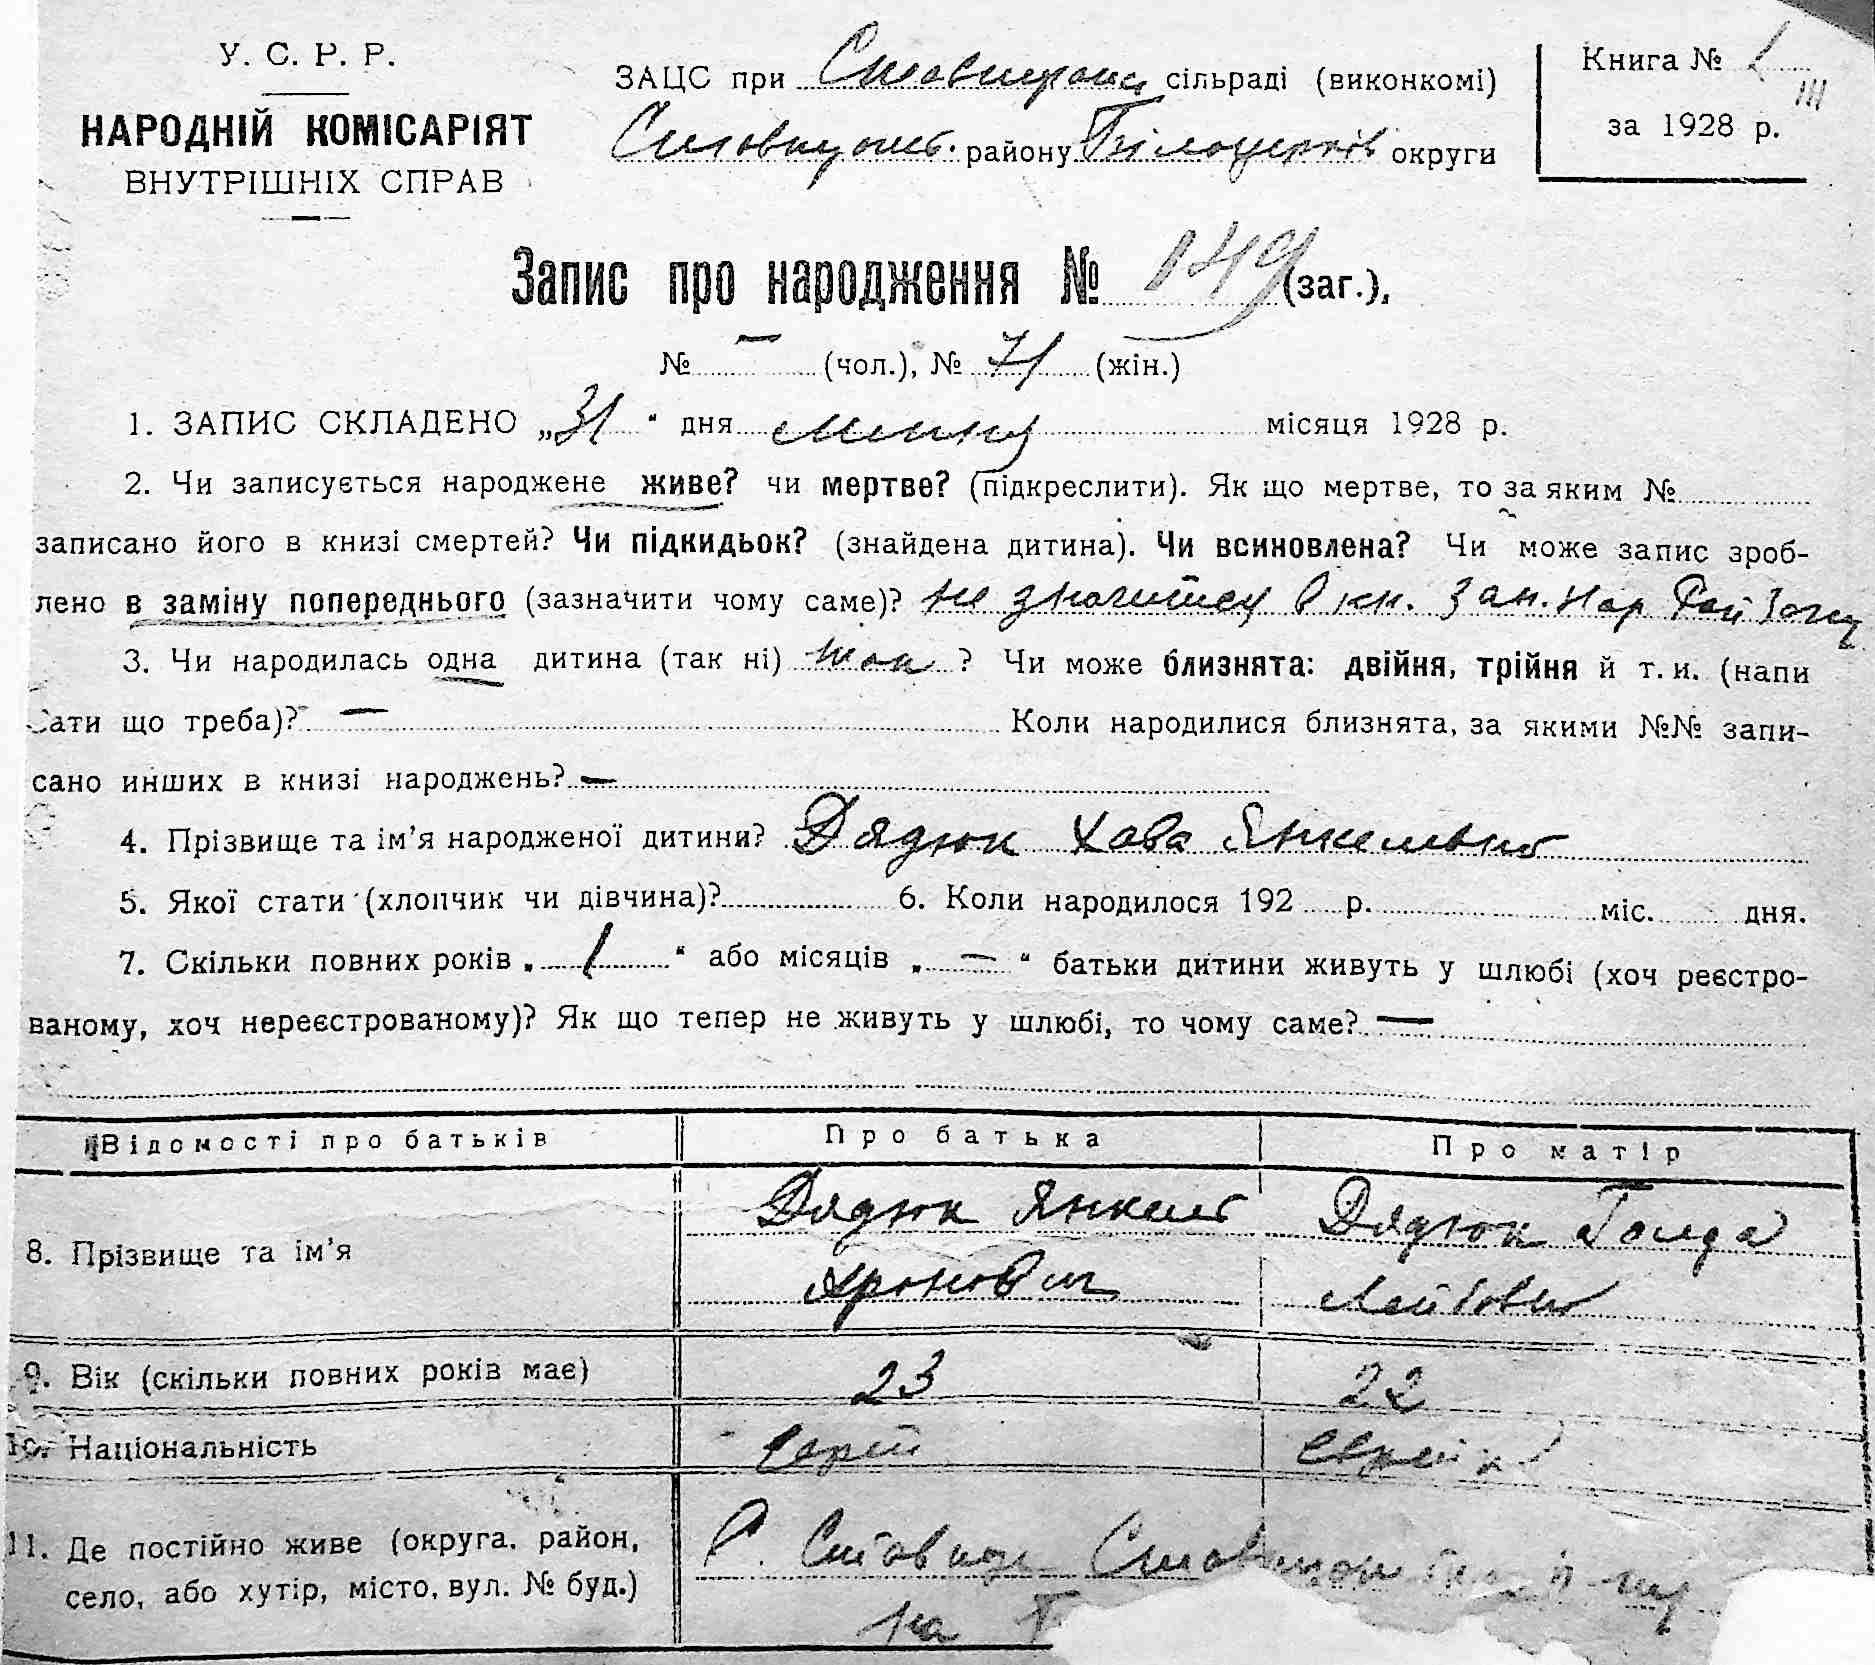 У. С. Р. Р.
НАРОДНІЙ КОМІСАРІЯТ
ВНУТРІШНІХ СПРАВ
ЗАЦС при Ставищанц сільраді (виконкомі)
Ставищанс. району Білоцерків округи
Книга № 1
III
за 1928 р.
Запис про народження № 149 (заг.),
№ — (чол.), № 71 (жін.)
1. ЗАПИС СКЛАДЕНО „31“ дня липня місяця 1928 р.
2. Чи записується народжене живе? чи мертве? (підкреслити). Як що мертве, то за яким №
записано його в книзі смертей? Чи підкидьок? (знайдена дитина). Чи всиновлена? Чи може запис зроб-
лено в заміну попереднього (зазначити чому саме)? не значится в кн. зап. нар Рай Загсу
3. Чи народилась одна дитина (так ні) так ? Чи може близнята: двійня, трійня й т. и. (напи
сати що треба)? — Коли народилися близнята, за якими №№ запи-
сано инших в книзі народжень? —
4. Прізвище та ім'я народженої дитини? Дядюк Хава Янкельвна
5. Якої стати (хлопчик чи дівчина)? 6. Коли народилося 192 р. міс. дня.
7. Скільки повних років „1“ або місяців „—“ батьки дитини живуть у шлюбі (хоч реєстро-
ваному, хоч нереєстрованому)? Як що тепер не живуть у шлюбі, то чому саме? —
Відомості про батьків Про батька Про матір
8. Прізвище та ім'я Дядюк Янкель Дядюк Голда
Аронович Лейбовна
9. Вік (скільки повних років має) 23 22
10. Національність Єврей Єврейка
11. Де постійно живе (округа, район,
село, або хутір, місто, вул. № буд.)
С. Ставище Ставищан
на